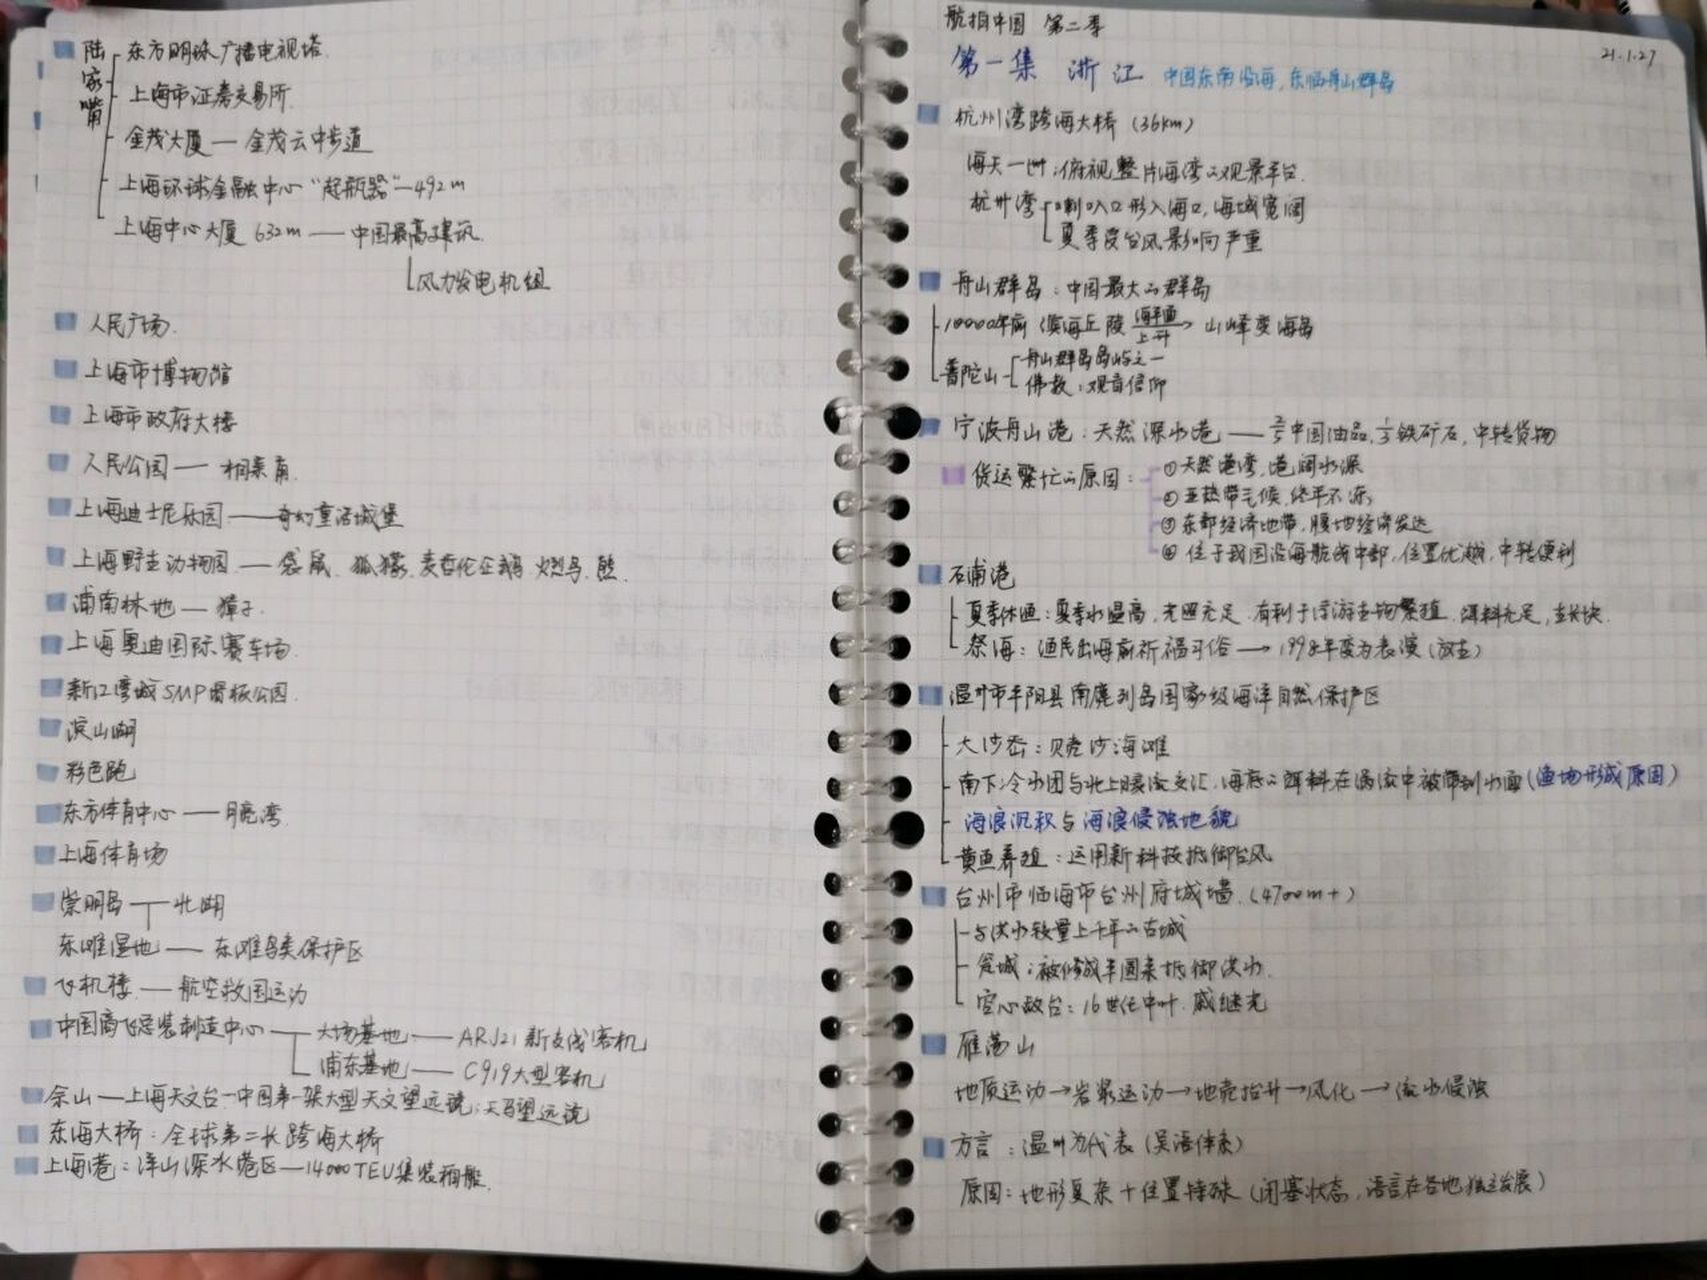 陆家嘴
东方明珠广播电视塔
上海市证券交易所
金茂大厦 — 金茂云中步道
上海环球金融中心“起瓶器”—492m
上海中心大厦 632m —— 中国最高建筑
风力发电机组
人民广场
上海市博物馆
上海市政府大楼
人民公园 — 相亲角
上海迪士尼乐园 —— 奇幻童话城堡
上海野生动物园 — 袋鼠、狐獴、麦哲伦企鹅 火烈鸟、熊
浦南林地 — 獐子
上海奥迪国际赛车场
新江湾城SMP滑板公园
淀山湖
彩色跑
东方体育中心 —— 月亮湾
上海体育场
崇明岛 — 北湖
东滩湿地 — 东滩鸟类保护区
飞机楼 — 航空救国运动
中国商飞总装制造中心 — 大场基地 — ARJ21新支线客机
浦东基地 — C919大型客机
佘山 — 上海天文台 - 中国第一架大型天文望远镜;天马望远镜
东海大桥:全球第二长跨海大桥
上海港:洋山深水港区 — 14000TEU集装箱船
航拍中国 第二季
21.1.27
第一集 浙江 中国东南沿海,东临舟山群岛
杭州湾跨海大桥 (36km)
海天一洲:俯视整片海湾の观景平台
杭州湾 喇叭口形入海口,海域宽阔
夏季受台风影响严重
舟山群岛:中国最大の群岛
10000年前 滨海丘陵 海平面上升→ 山峰变海岛
普陀山 舟山群岛岛屿之一
佛教:观音信仰
宁波舟山港:天然深水港 —— 中国油品, 铁矿石,中转货物
货运繁忙の原因:①天然港湾,港阔水深
②亚热带气候,终年不冻
③东部经济地带,腹地经济发达
④位于我国沿海航线中部,位置优越,中转便利
石浦港
夏季休渔:夏季水温高,光照充足,有利于浮游生物繁殖,饵料充足,生长快
祭海:渔民出海前祈福习俗 → 1998年变为表演(放生)
温州市平阳县南麂列岛国家级海洋自然保护区
大沙岙:贝壳沙海滩
南下冷水团与北上暖流交汇,海底の饵料在涡流中被带到水面(渔场形成原因)
海浪沉积与海浪侵蚀地貌
黄鱼养殖:运用新科技抵御台风
台州市临海市台州府城墙 (4700m+)
与洪水较量上千年の古城
瓮城:被修成半圆来抵御洪水
空心敌台:16世纪中叶,戚继光
雁荡山
地质运动→岩浆运动→地壳抬升→风化→流水侵蚀
方言:温州为代表(吴语体系)
原因:地形复杂+位置特殊(闭塞状态,语言在各地独立发展)